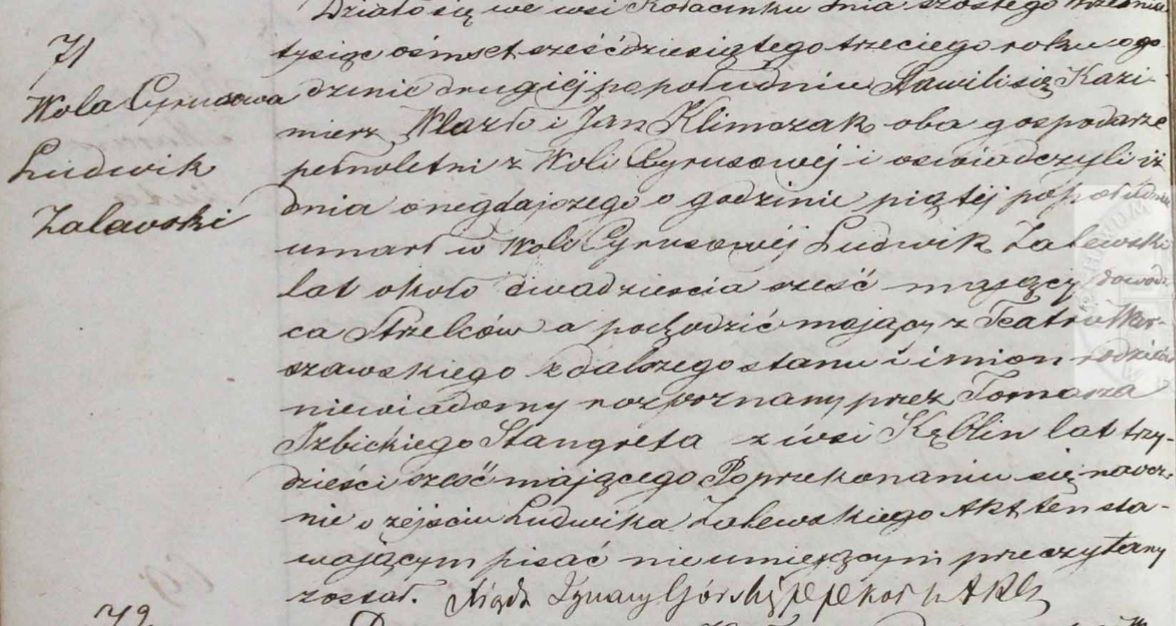 Działo się we wsi Kołacinku dnia szóstego
71
tysiąc ośmset sześćdziesiątego trzeciego roku o go
Wola Cyrusowa
dzinie drugiéj popołudniu Stawili się Kazi
mierz Wlazło i Jan Klimczak oba gospodarze
Ludwik
pełnoletni z Woli Cyrusowéj i oświadczyli iż
Zalawski
dnia onegdajszego o godzinie piątéj popołudniu
umarł w Woli Cyrusowéj Ludwik Zalewski
lat około dwadzieścia sześć mający dowod
ca Strzelców a pochodzić mający z Teatru War-
szawskiego z dalszego stanu i imion rodziców
niewiadomy rozpoznany przez Tomasza
Izbickiego Stangreta z wsi Kęblin lat trzy-
dzieści sześć mającego Poprzekonaniu się naocz-
nie o zejściu Ludwika Zalewskiego Akt ten sta-
wającym pisać nieumiejącym przeczytany
został. Xiądz Ignacy Górski
72